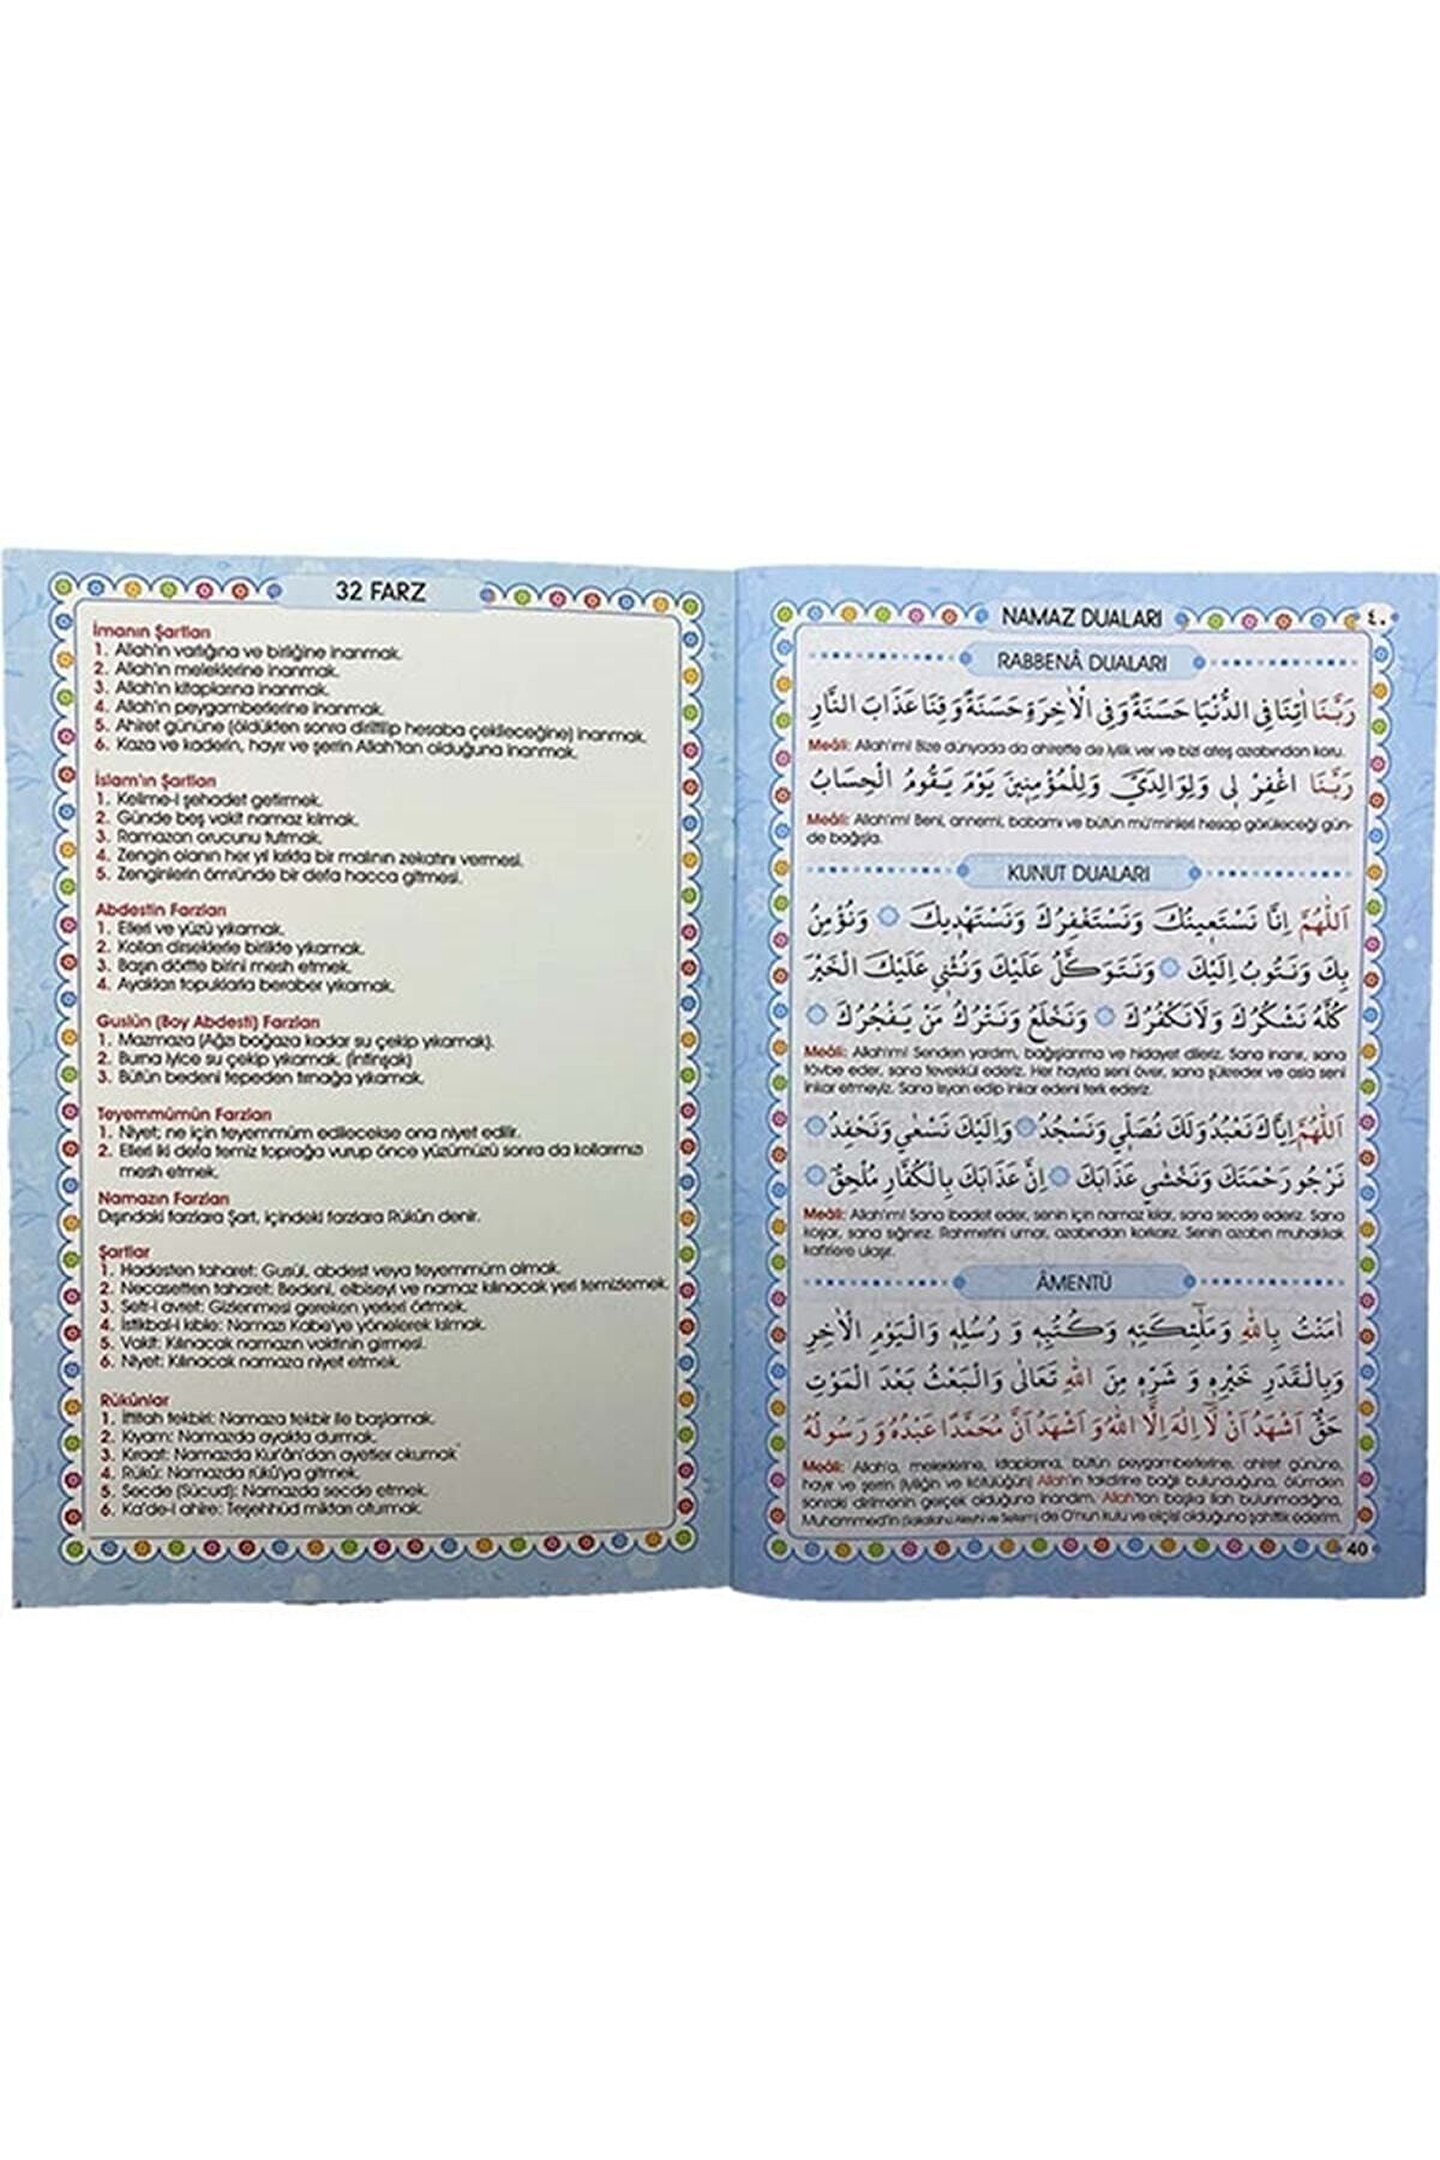 32 FARZ
İmanın Şartları
1. Allah'ın varlığına ve birliğine inanmak.
2. Allah'ın meleklerine inanmak.
3. Allah'ın kitaplarına inanmak.
4. Allah'ın peygamberlerine inanmak.
5. Ahiret gününe (öldükten sonra diriltilip hesaba çekileceğine) inanmak.
6. Kaza ve kaderin, hayır ve şerrin Allah'tan olduğuna inanmak.
İslam'ın Şartları
1. Kelime-i şehadet getirmek.
2. Günde beş vakit namaz kılmak.
3. Ramazan orucunu tutmak.
4. Zengin olanın her yıl kırkta bir malının zekatını vermesi.
5. Zenginlerin ömründe bir defa hacca gitmesi.
Abdestin Farzları
1. Elleri ve yüzü yıkamak.
2. Kolları dirseklerle birlikte yıkamak.
3. Başın dörtte birini mesh etmek.
4. Ayakları topuklarla beraber yıkamak.
Guslün (Boy Abdesti) Farzları
1. Mazmaza (Ağzı boğaza kadar su çekip yıkamak).
2. Burna iyice su çekip yıkamak. (İntinşak)
3. Bütün bedeni tepeden tırnağa yıkamak.
Teyemmümün Farzları
1. Niyet; ne için teyemmüm edilecekse ona niyet edilir.
2. Elleri iki defa temiz toprağa vurup önce yüzümüzü sonra da kollarımızı
mesh etmek.
Namazın Farzları
Dışındaki farzlara Şart, içindeki farzlara Rükün denir.
Şartlar
1. Hadesten taharet: Gusül, abdest veya teyemmüm almak.
2. Necasetten taharet: Bedeni, elbiseyi ve namaz kılınacak yeri temizlemek.
3. Setr-i avret: Gizlenmesi gereken yerleri örtmek.
4. İstikbal-i kıble: Namazı Kabe'ye yönelerek kılmak.
5. Vakit: Kılınacak namazın vaktinin girmesi.
6. Niyet: Kılınacak namaza niyet etmek.
Rükünlar
1. İftitah tekbiri: Namaza tekbir ile başlamak.
2. Kıyam: Namazda ayakta durmak.
3. Kıraat: Namazda Kur'ân'dan ayetler okumak
4. Rükû: Namazda rükû'ya gitmek.
5. Secde (Sücud): Namazda secde etmek.
6. Ka'de-i ahire: Teşehhüd miktarı oturmak.
NAMAZ DUALARI
٤٠
RABBENÂ DUALARI
رَبَّنَا اٰتِنَا فِي الدُّنْيَا حَسَنَةً وَفِي الْاٰخِرَةِ حَسَنَةً وَقِنَا عَذَابَ النَّارِ
Meâli: Allah'ım! Bize dünyada da ahirette de iyilik ver ve bizi ateş azabından koru.
رَبَّنَا اغْفِرْ لِي وَلِوَالِدَيَّ وَلِلْمُؤْمِنِينَ يَوْمَ يَقُومُ الْحِسَابُ
Meâli: Allah'ım! Beni, annemi, babamı ve bütün mü'minleri hesap görüleceği gün-
de bağışla.
KUNUT DUALARI
اَللّٰهُمَّ اِنَّا نَسْتَعِينُكَ وَنَسْتَغْفِرُكَ وَنَسْتَهْدِيكَ وَنُؤْمِنُ
بِكَ وَنَتُوبُ اِلَيْكَ وَنَتَوَكَّلُ عَلَيْكَ وَنُثْنِي عَلَيْكَ الْخَيْرَ
كُلَّهُ نَشْكُرُكَ وَلَا نَكْفُرُكَ وَنَخْلَعُ وَنَتْرُكُ مَنْ يَفْجُرُكَ
Meâli: Allah'ım! Senden yardım, bağışlanma ve hidayet dileriz. Sana inanır, sana
tövbe eder, sana tevekkül ederiz. Her hayırla seni över, sana şükreder ve asla seni
inkar etmeyiz. Sana isyan edip inkar edeni terk ederiz.
اَللّٰهُمَّ اِيَّاكَ نَعْبُدُ وَلَكَ نُصَلِّي وَنَسْجُدُ وَاِلَيْكَ نَسْعٰى وَنَحْفِدُ
نَرْجُو رَحْمَتَكَ وَنَخْشٰى عَذَابَكَ اِنَّ عَذَابَكَ بِالْكُفَّارِ مُلْحِقٌ
Meâli: Allah'ım! Sana ibadet eder, senin için namaz kılar, sana secde ederiz. Sana
koşar, sana sığınırız. Rahmetini umar, azabından korkarız. Senin azabın muhakkak
kafirlere ulaşır.
ÂMENTÜ
اٰمَنْتُ بِاللّٰهِ وَمَلٰٓئِكَتِهِ وَكُتُبِهِ وَ رُسُلِهِ وَالْيَوْمِ الْاٰخِرِ
وَبِالْقَدَرِ خَيْرِهِ وَ شَرِّهِ مِنَ اللّٰهِ تَعَالٰى وَالْبَعْثُ بَعْدَ الْمَوْتِ
حَقٌّ اَشْهَدُ اَنْ لَٓا اِلٰهَ اِلَّا اللّٰهُ وَ اَشْهَدُ اَنَّ مُحَمَّدًا عَبْدُهُ وَ رَسُولُهُ
Meâli: Allah'a, meleklerine, kitaplarına, bütün peygamberlerine, ahiret gününe,
hayır ve şerrin (iyiliğin ve kötülüğün) Allah'ın takdirine bağlı bulunduğuna, ölümden
sonraki dirilmenin gerçek olduğuna inandım. Allah'tan başka ilah bulunmadığına,
Muhammed'in (Sallallahü Aleyhi ve Sellem) de O'nun kulu ve elçisi olduğuna şahitlik ederim.
40